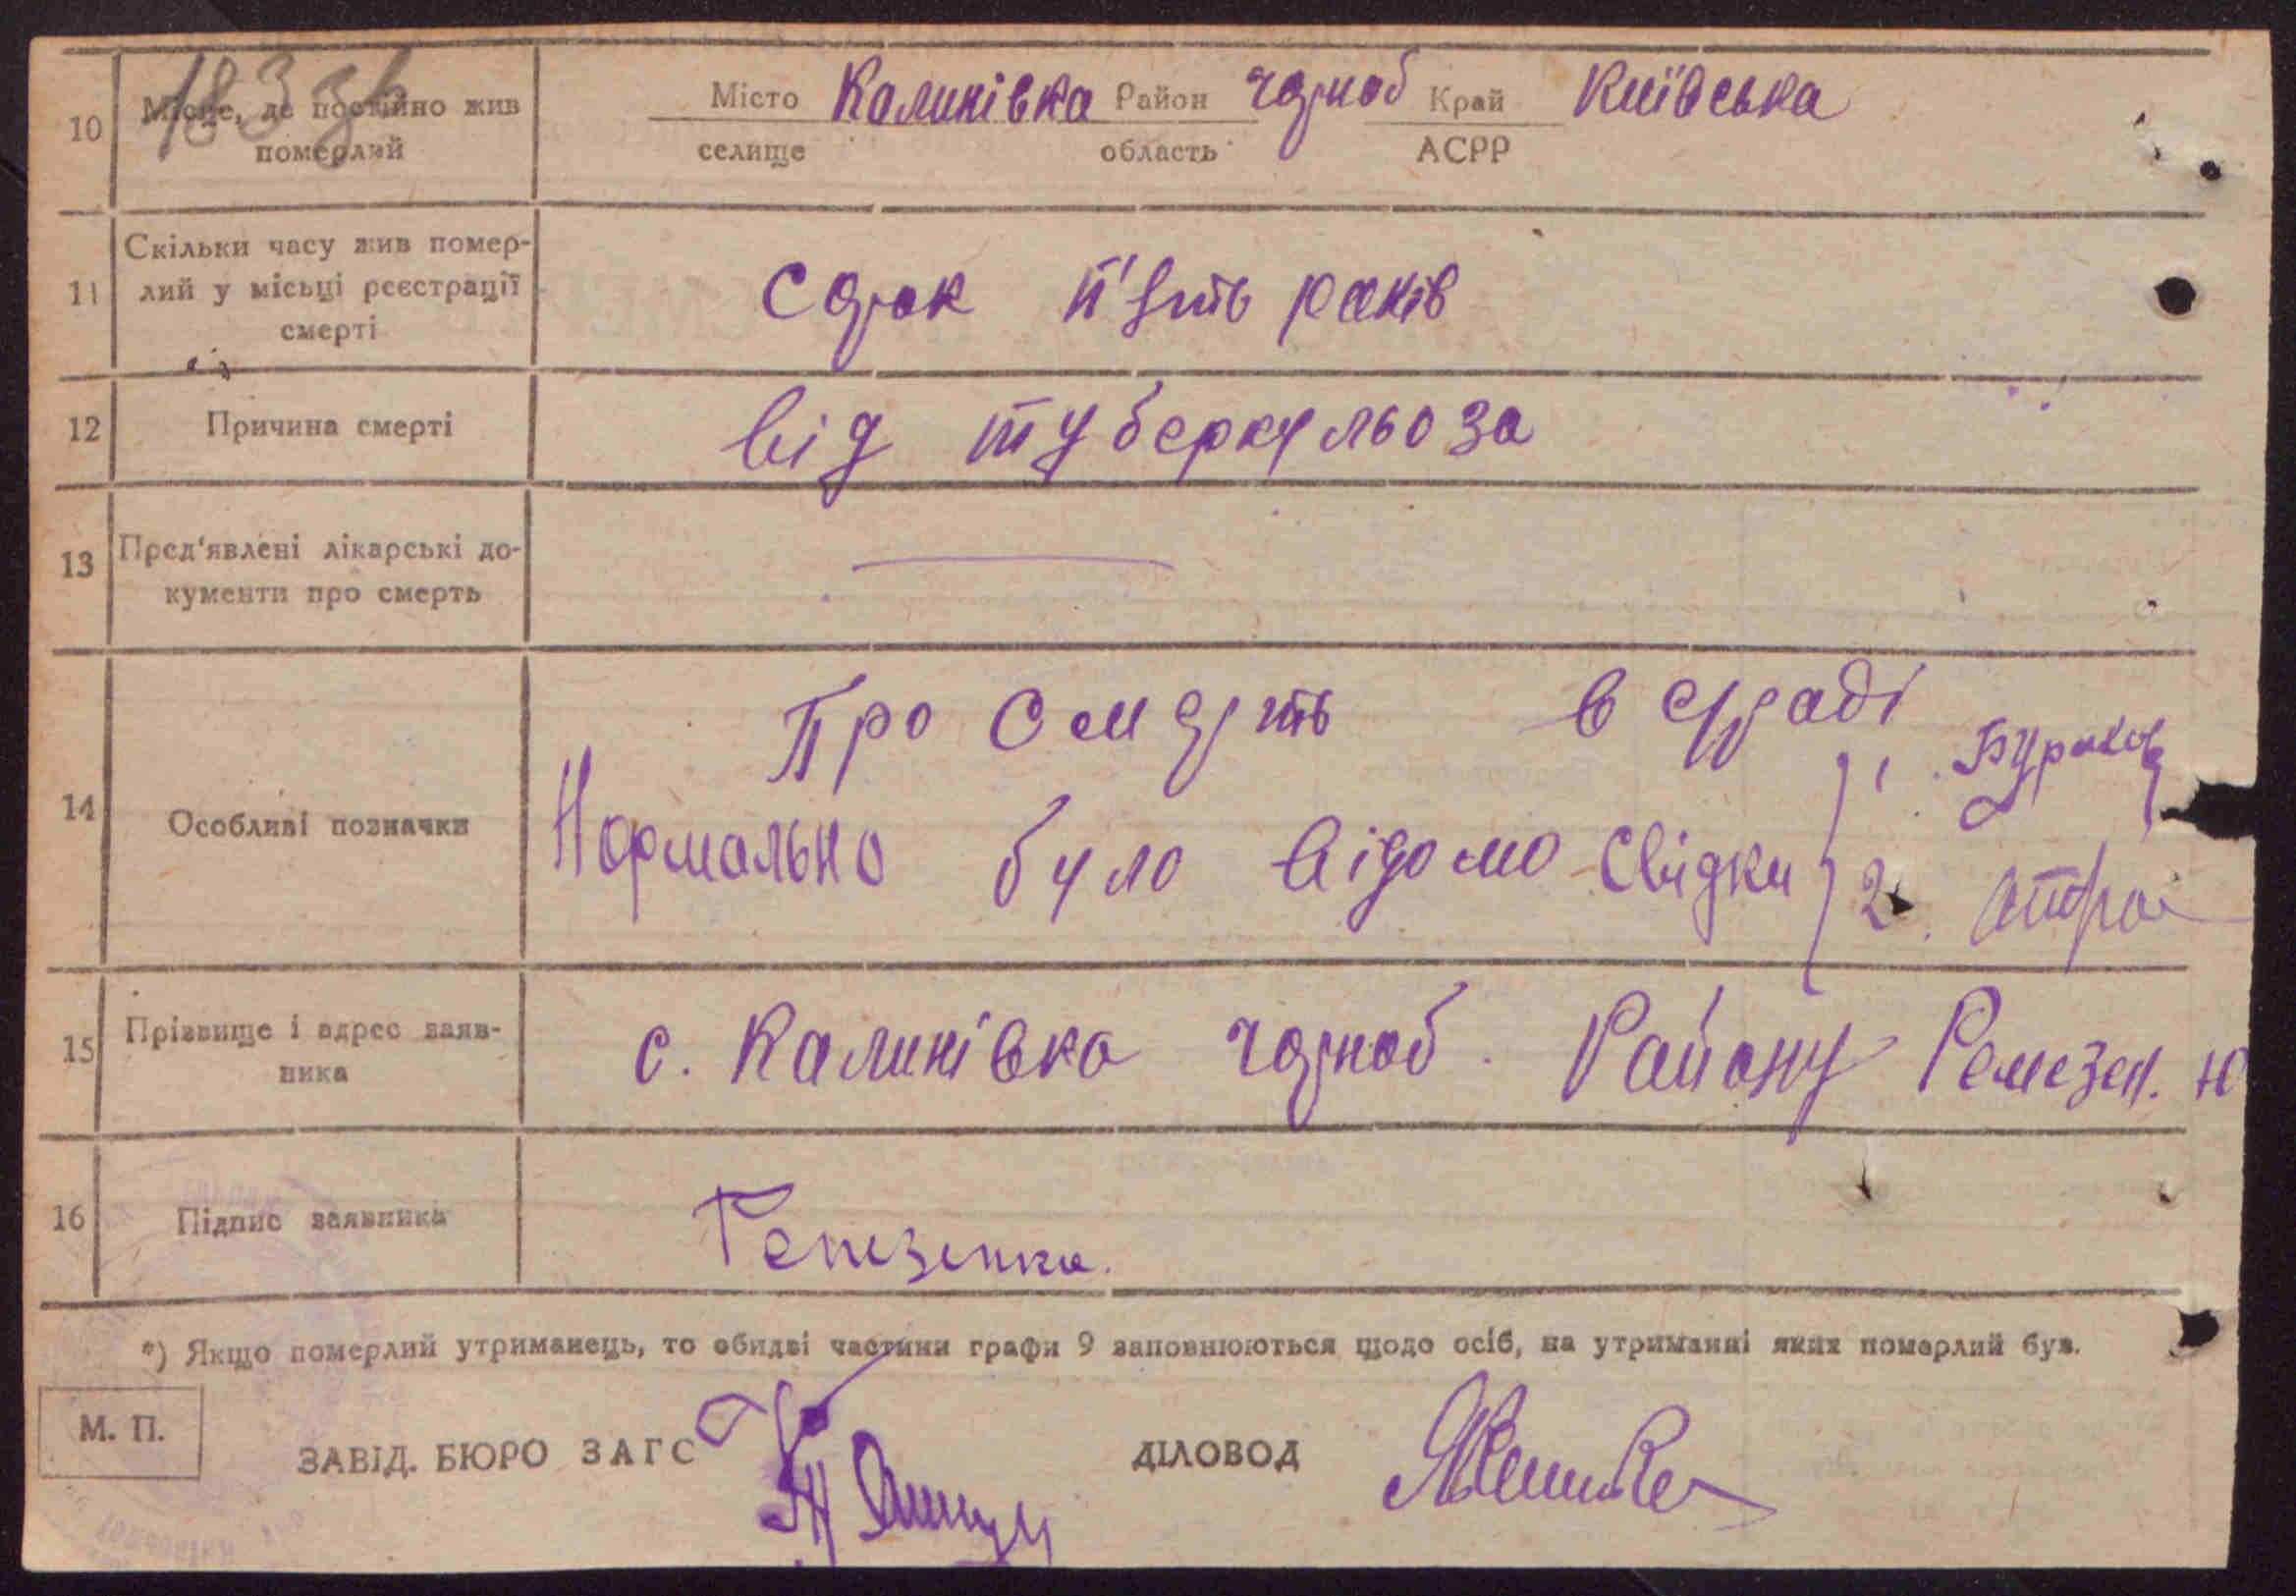 10 Місце, де постійно жив Місто Калинівка Район чорноб Край Київська
померлий селище область АСРР
Скільки часу жив помер-
11 лий у місьці реєстрації сорок п'ять років
смерті
12 Причина смерті від туберкульоза
13 Пред'явлені лікарські до-
кументи про смерть
Про смерть в сраді
14 Особливі позначки Нормально було відомо свідки
1. Бураков
2.
15 Прізвище і адрес заяв- с. Калинівка чорноб. Району Ремезен. Ю
ника
16 Підпис заявника Ремезенко.
*) Якщо померлий утриманець, то обидві частини графи 9 заповнюються щодо осіб, на утриманні яких померлий був.
М. П.
ЗАВІД. БЮРО ЗАГС ДІЛОВОД